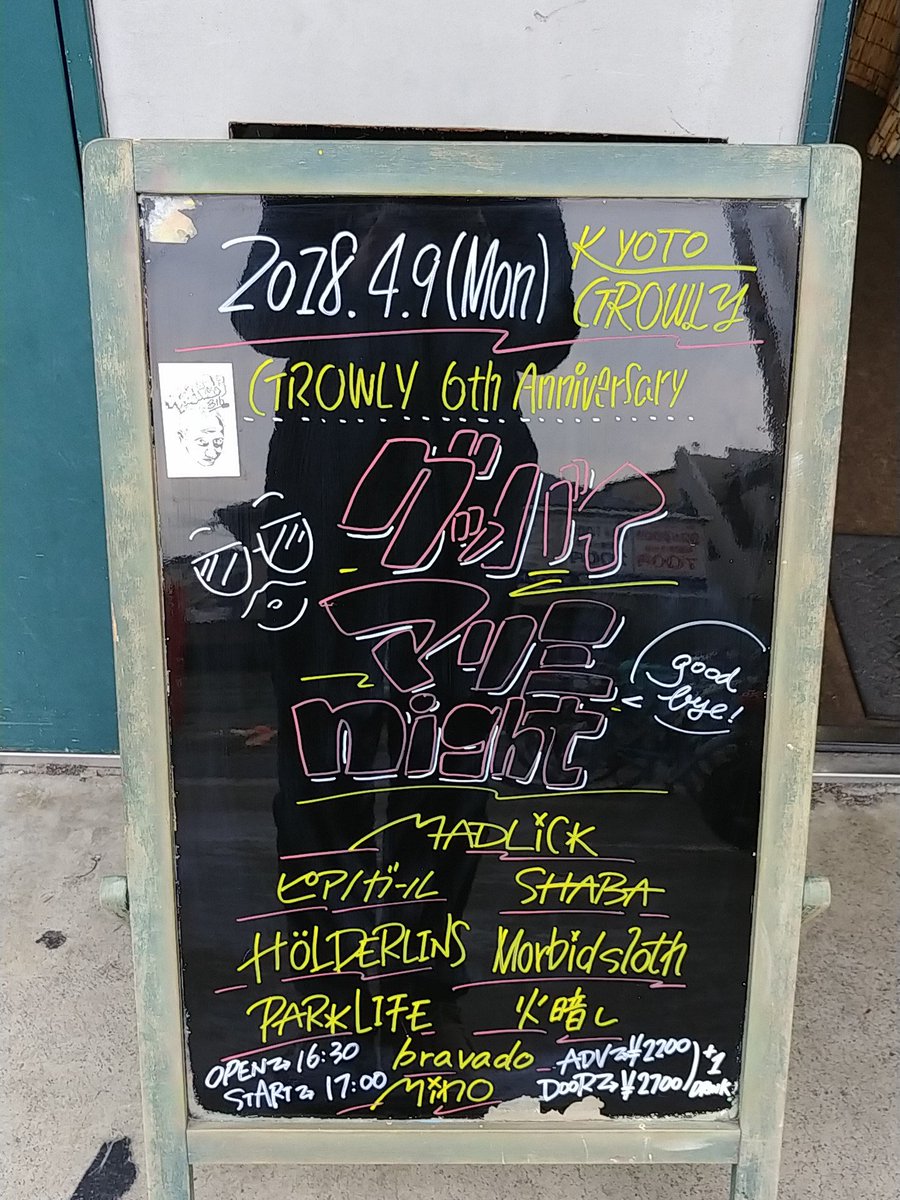 2018.4.9(Mon) KYOTO GROWLY
GROWLY 6th Anniversary
グッバイ
マリミ
night
good bye!
MADLiCK
ピアノガール SHABA
HÖLDERLINS Morbidsloth
PARKLIFE 火暗し
OPEN 16:30 bravado ADV ¥2200
START 17:00 MiNO DOOR ¥2700
+1 DRINK